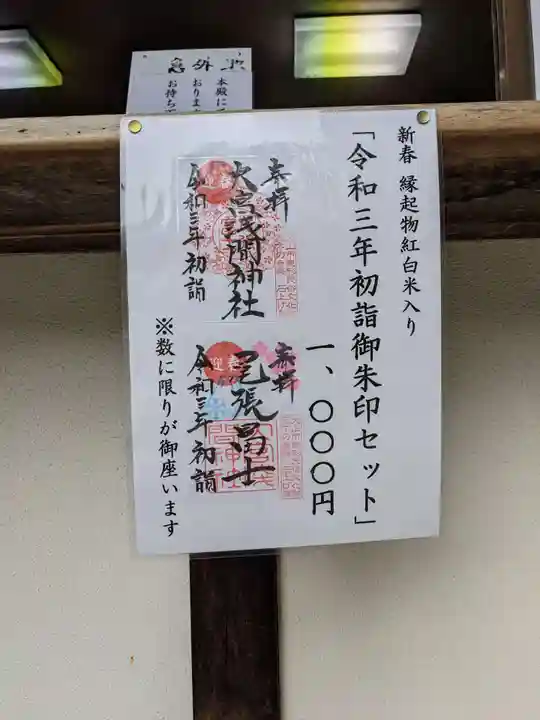 意外上
本殿に
おりま
お持ち
新春 縁起物紅白米入り
「令和三年初詣御朱印セット」
一、〇〇〇円
奉拝
大宮浅間神社
迎春
令和三年初詣
奉拝
尾張冨士
迎春
令和三年初詣
※数に限りが御座います